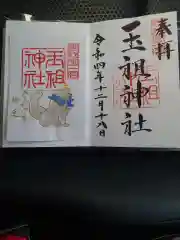 奉拝
玉祖神社
令和四年十二月十八日
玉祖
神社